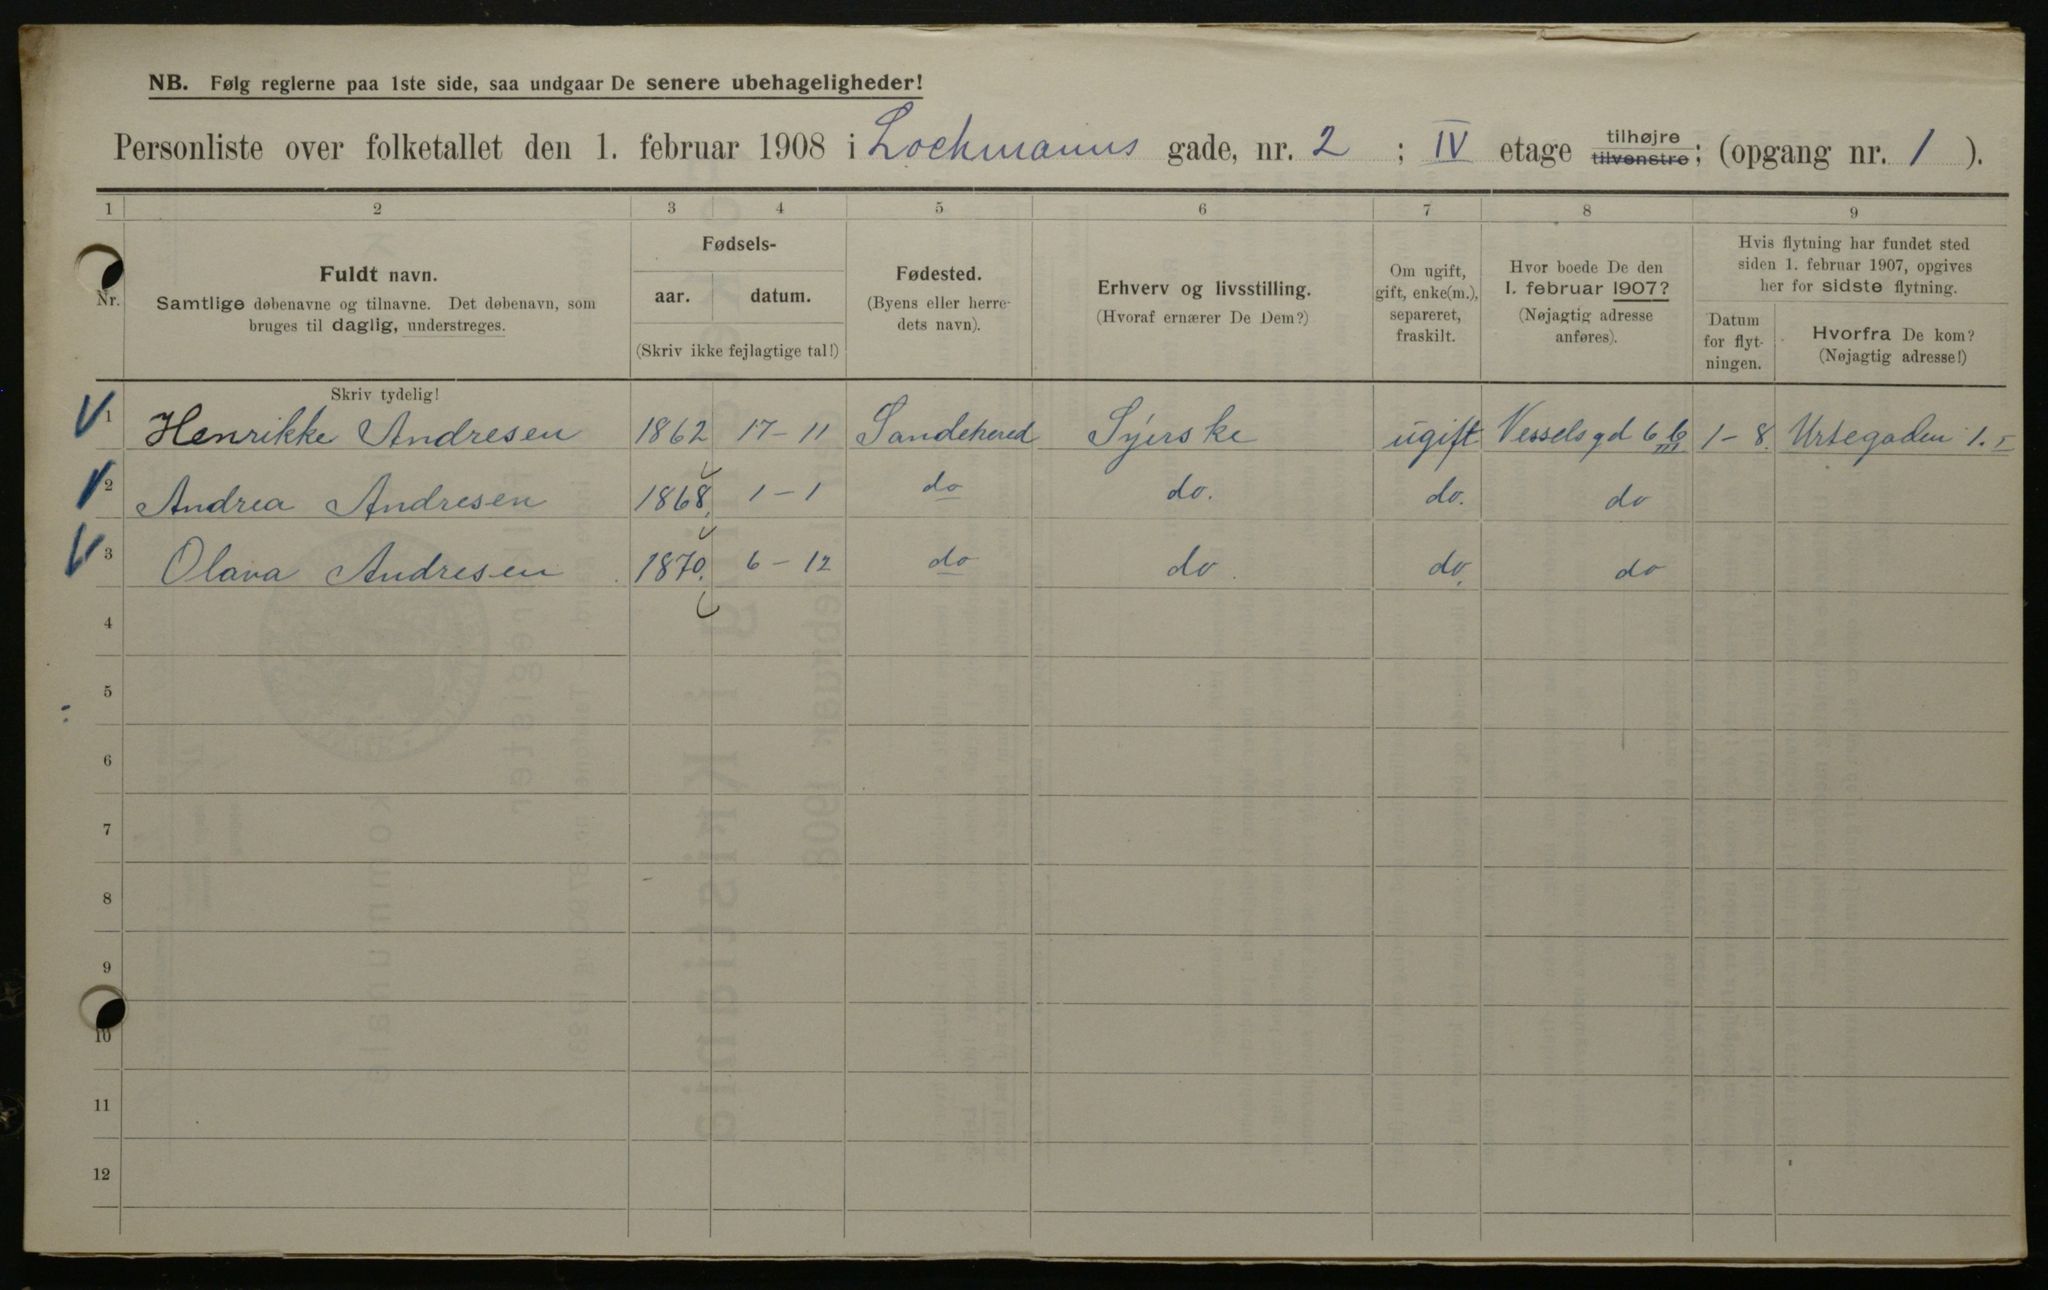 NB. Følg reglerne paa 1ste side, saa undgaar De senere ubehageligheder!
Personliste over folketallet den 1. februar 1908 i Lochmanns gade, nr. 2 ; IV etage tilhøjre tilvenstre; (opgang nr. 1 ).
1 2 3 4 5 6 7 8 9
Nr.
Fuldt navn.
Samtlige døbenavne og tilnavne. Det døbenavn, som
bruges til daglig, understreges.
Fødsels-
aar. datum.
(Skriv ikke fejlagtige tal!)
Fødested.
(Byens eller herre-
dets navn).
Erhverv og livsstilling.
(Hvoraf ernærer De Dem?)
Om ugift,
gift, enke(m.),
separeret,
fraskilt.
Hvor boede De den
1. februar 1907?
(Nøjagtig adresse
anføres).
Hvis flytning har fundet sted
siden 1. februar 1907, opgives
her for sidste flytning.
Datum
for flyt-
ningen.
Hvorfra De kom?
(Nøjagtig adresse!)
Skriv tydelig!
1 Henrikke Andresen 1862 17-11 Sandehered Syerske ugift Vesselsgd 6 b III 1-8. Urtegaden 1. I
2 Andrea Andresen 1868. 1-1 do do. do. do
3 Olava Andresen 1870. 6-12 do do do. do
4
5
6
7
8
9
10
11
12